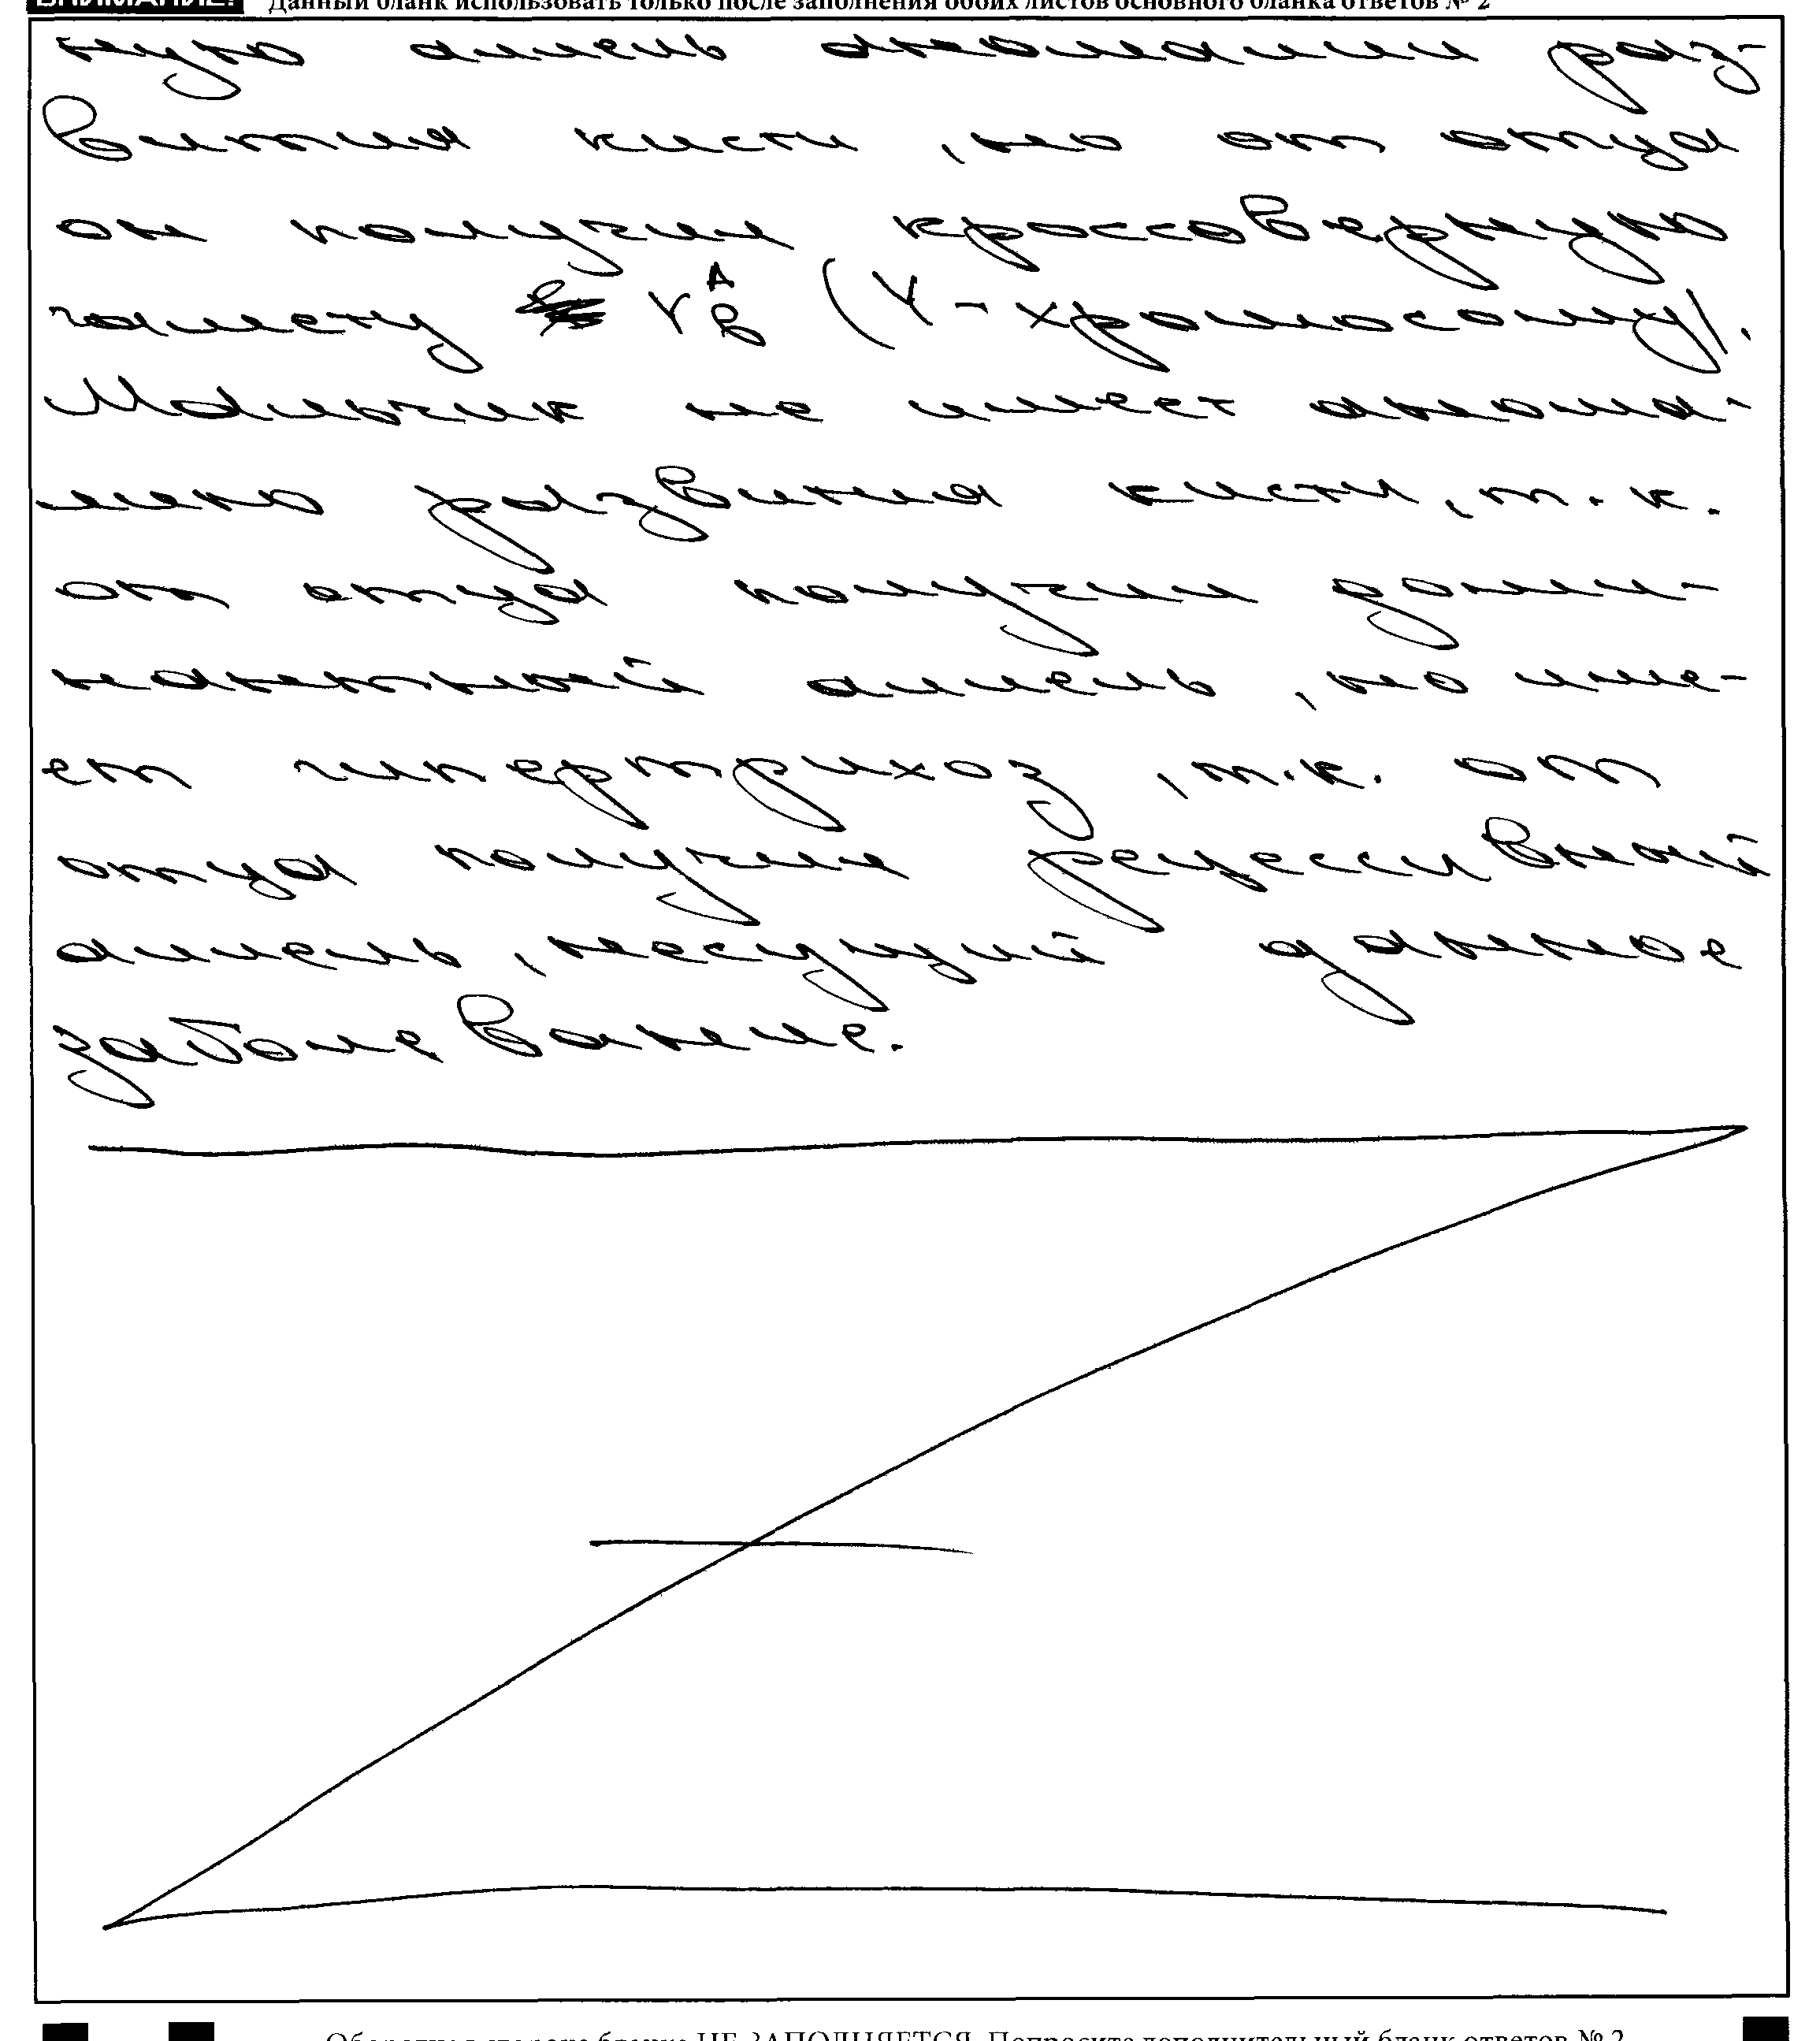 ВНИМАНИЕ! Данный бланк использовать только после заполнения обоих листов основного бланка ответов № 2
ную аллель аномалии раз-
вития кисти, но от отца
он получил кроссоверную
гамету Y A b (Y-хромосому).
Мальчик не имеет анома-
лию развития кисти, т.к.
от отца получил доми-
нантный аллель, но име-
ет гипертрихоз, т.к. от
отца получил рецессивный
аллель, несущий данное
заболевание.
Оборотная сторона бланка НЕ ЗАПОЛНЯЕТСЯ. Попросите дополнительный бланк ответов № 2